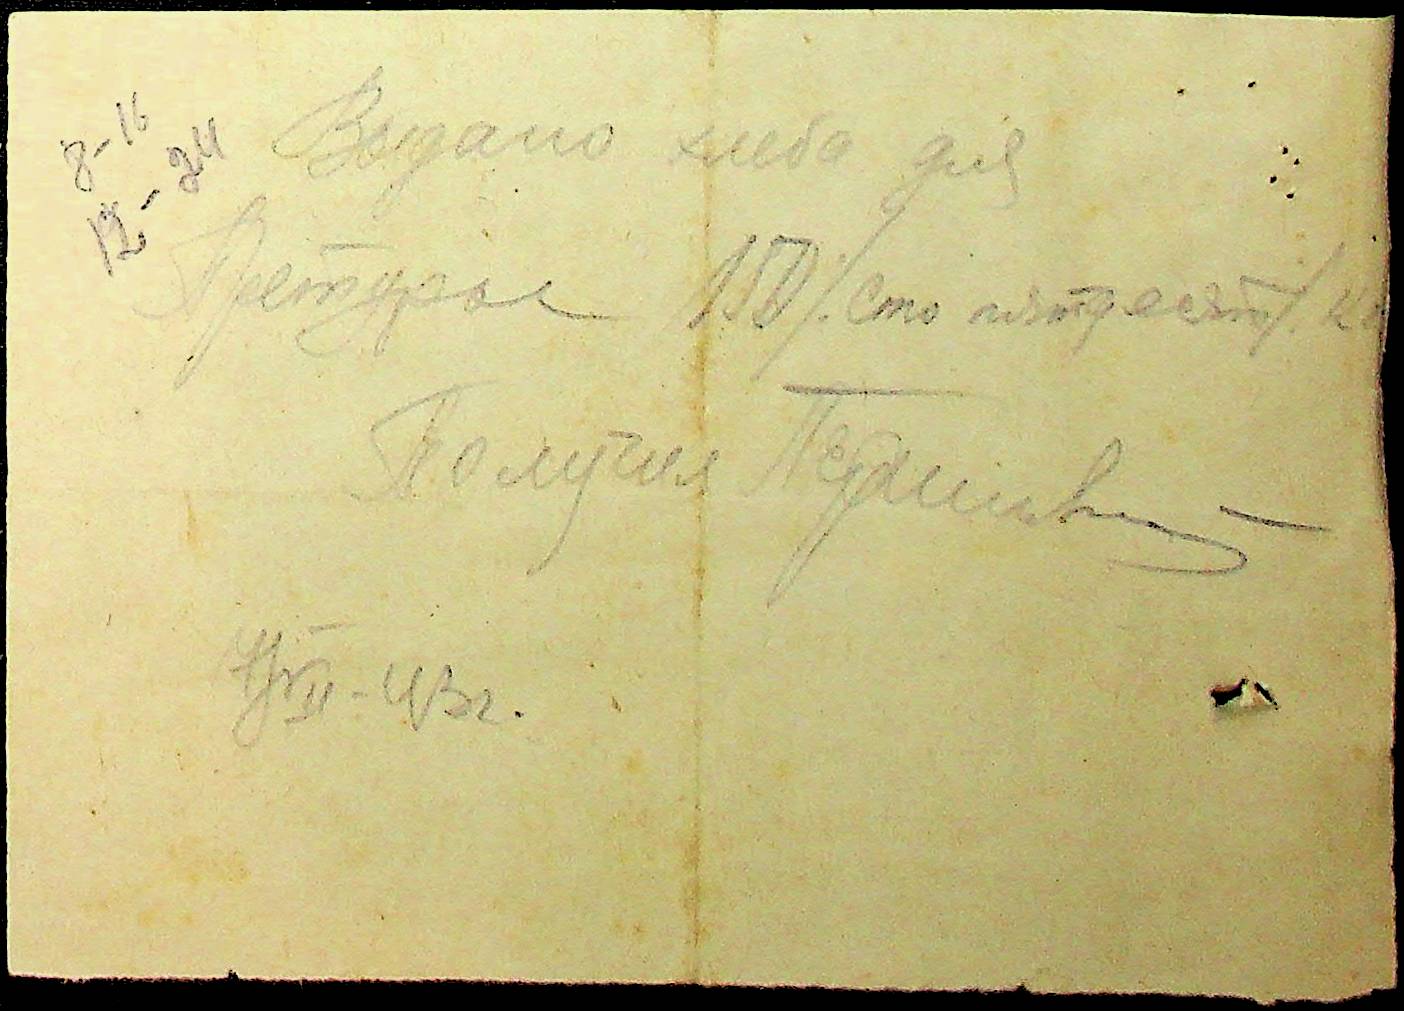 8-16
12-24
Выдано хлеба для
Претуры 150 /. сто пятдесят /. кг
Получил
7/VII-43г.